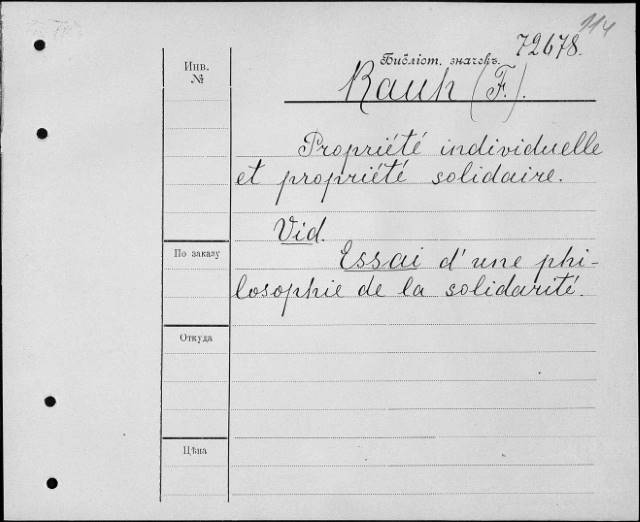 114
72678.
Инв.
№
Библіот. значекъ.
Rauh (F.).
Propriété individuelle
et propriété solidaire.
Vid.
Essai d'une phi-
losophie de la solidarité.
По заказу
Откуда
Цѣна